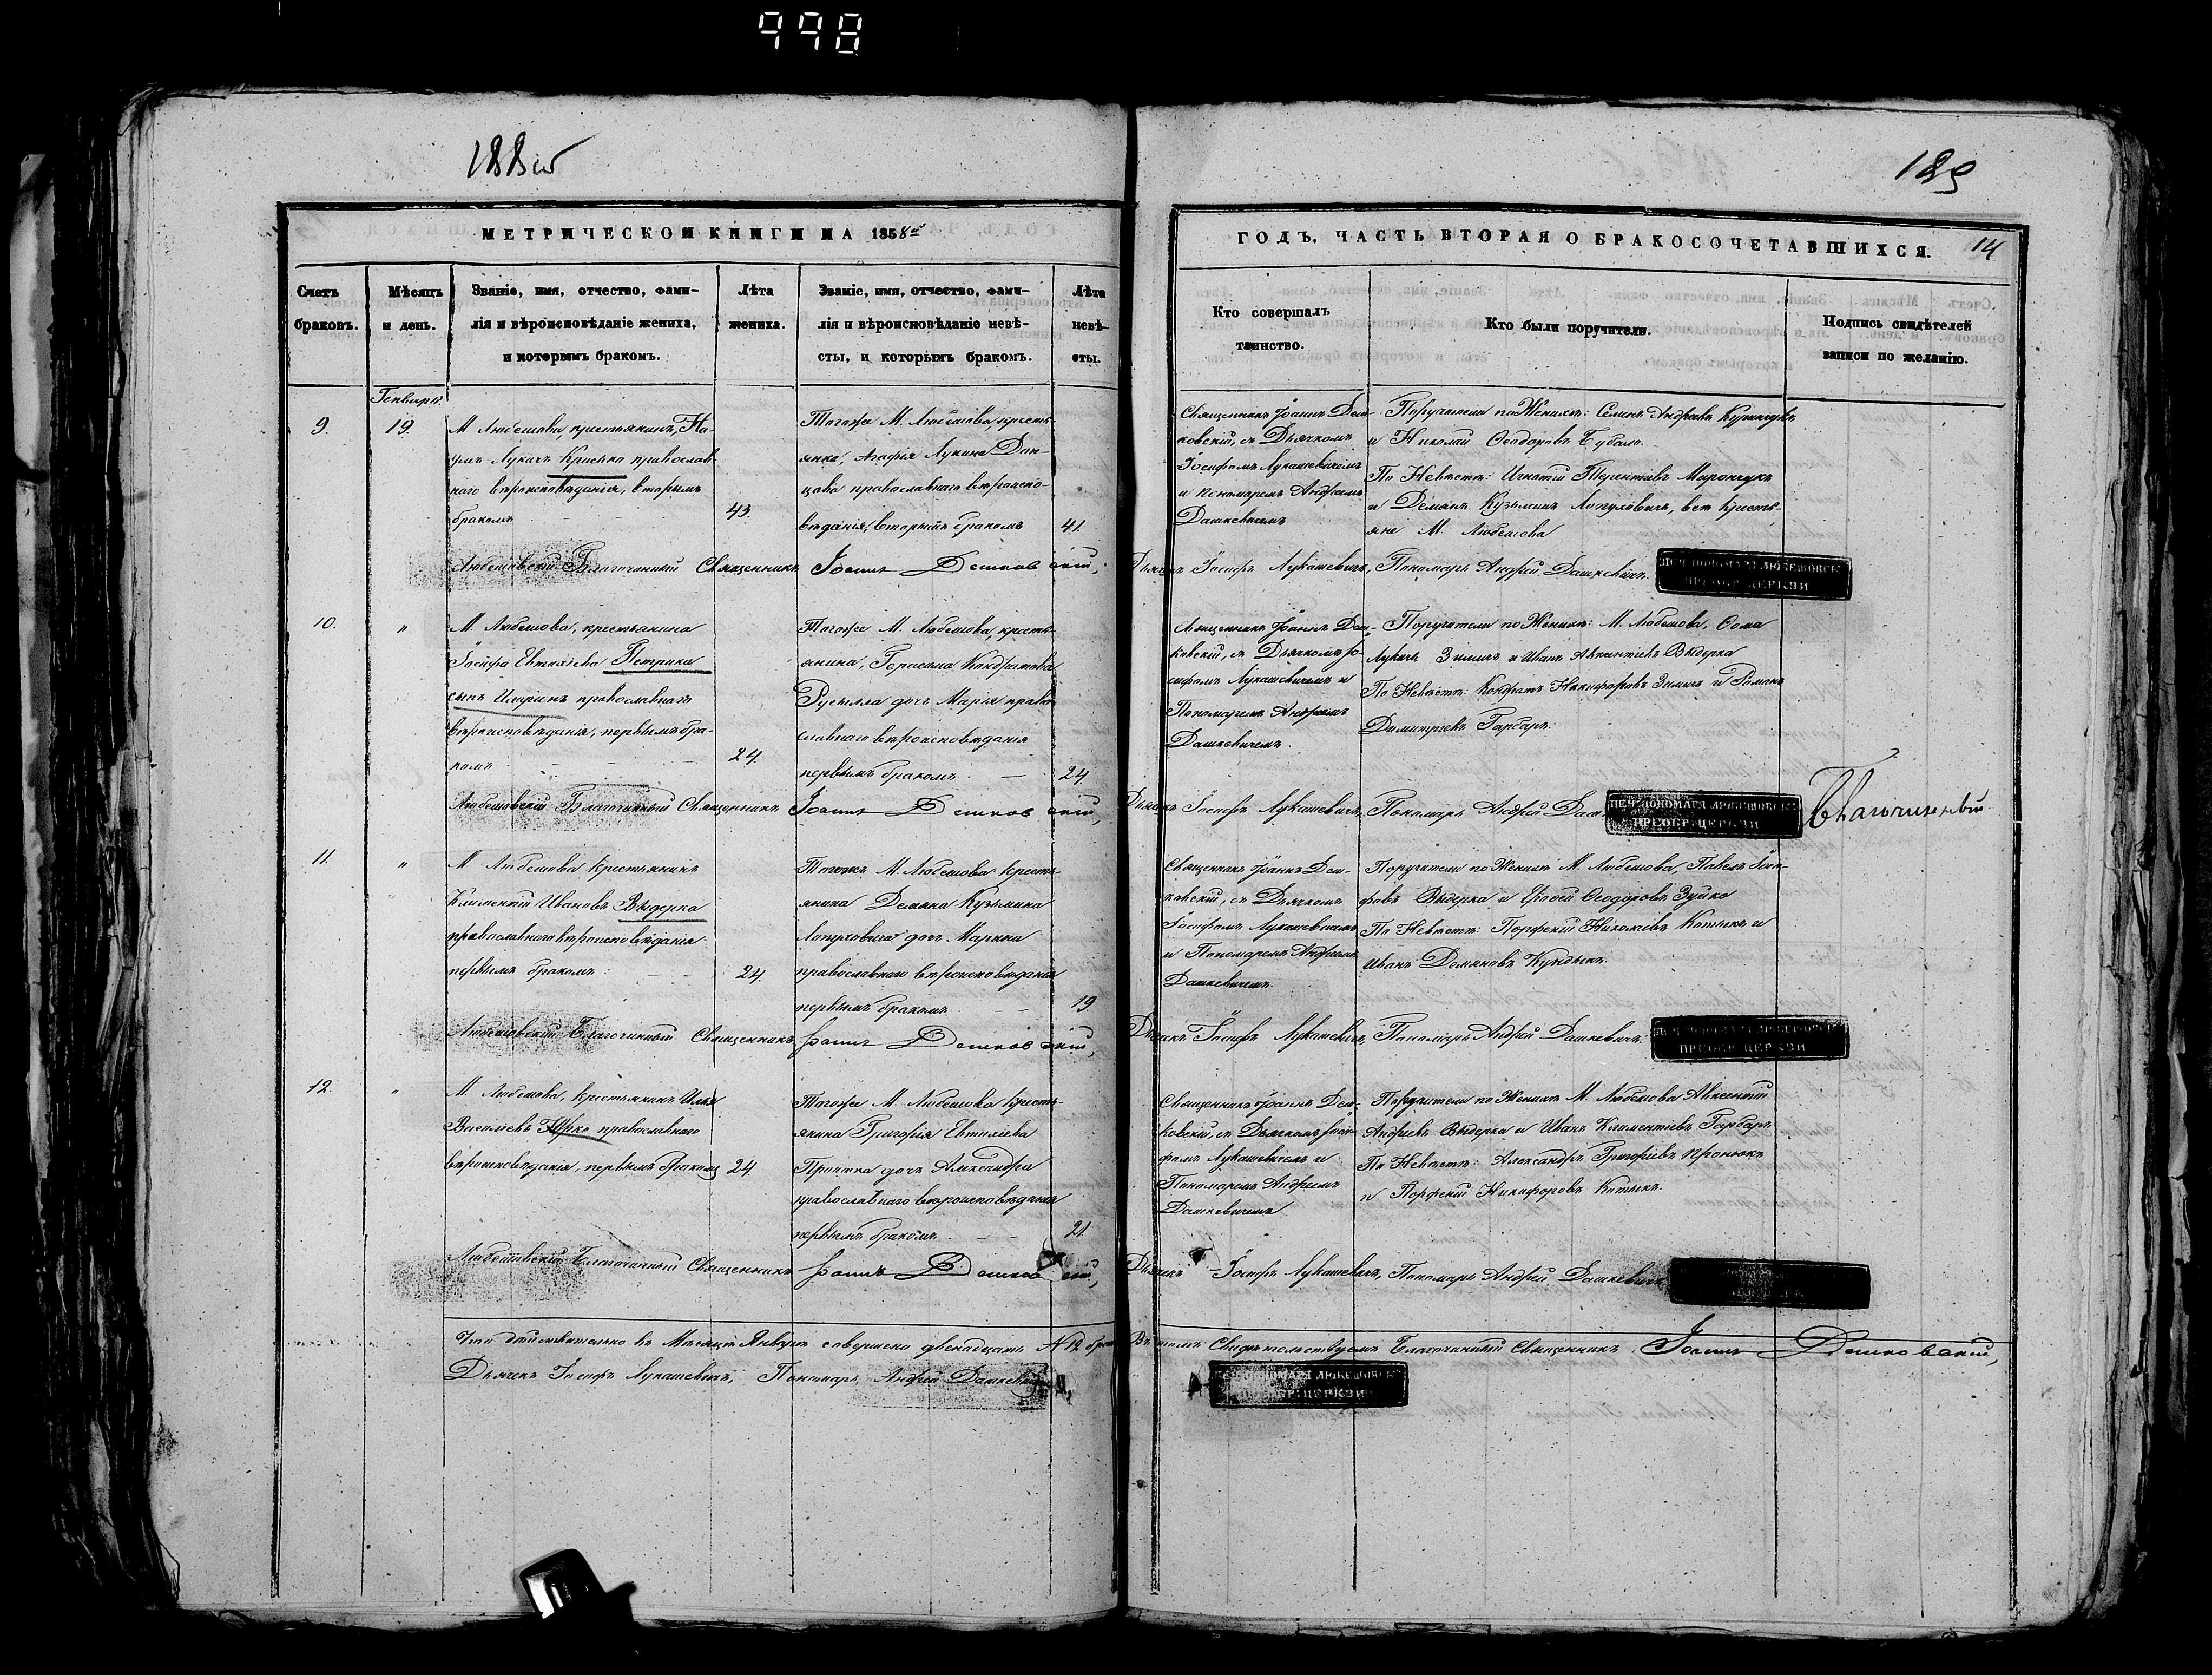 998
188об
189
МЕТРИЧЕСКОЙ КНИГИ НА 1858й
ГОДЪ, ЧАСТЬ ВТОРАЯ О БРАКОСОЧЕТАВШИХСЯ.
14
Счетъ браковъ.
Мѣсяцъ и день.
Званіе, имя, отчество, фами-
лія и вѣроисповѣданіе жениха,
и которымъ бракомъ.
Лѣта жениха.
Званіе, имя, отчество, фами-
лія и вѣроисповѣданіе невѣ-
сты, и которымъ бракомъ.
Лѣта невѣ-
сты.
Кто совершалъ
таинство.
Кто были поручители.
Подпись свидѣтелей
записи по желанію.
Генваря
9.
19.
М. Любешова, крестьянинъ, На-
умъ Лукичъ Крисько православ
наго вѣроисповѣданія, вторымъ
бракомъ
43.
Тогоже М. Любешова кресть-
янка, Агафія Лукина Дан-
цова православнаго вѣроиспо-
вѣданія, вторымъ бракомъ
41.
Священникъ Іоаннъ Деш-
ковскій, съ Дьячкомъ
Іосифомъ Лукашевичемъ
и Пономаремъ Андреемъ
Дашкевичемъ
Поручители по Женихѣ: Семенъ Андреевъ
и Николай Ѳеодоровъ
По Невѣстѣ: Игнатій Терентіевъ Мирончукъ
и Демянъ Кузьминъ Лопуховичъ, всѣ кресть-
яне М. Любешова
Любешовскій Благочинный Священникъ Іоаннъ Дешковскій,
Дьячекъ Іосифъ Лукашевичъ, Пономарь Андрей Дашкевичъ.
ПЕЧ. ПОНОМАРЯ ЛЮБЕШОВСК
ПРЕОБР. ЦЕРКВИ
10.
"
М. Любешова, крестьянина
Іосифа Евтихіева Петрика
сынъ Иларіонъ православнаго
вѣроисповѣданія, первымъ бра-
комъ
24.
Тогоже М. Любешова, кресть-
янина, Герасима Кондратова
дочь Марія право
славнаго вѣроисповѣданія
первымъ бракомъ
24
Священникъ Іоаннъ Деш-
ковскій, съ Дьячкомъ Іо-
сифомъ Лукашевичемъ и
Пономаремъ Андреемъ
Дашкевичемъ.
Поручители по Женихѣ: М. Любешова, Ѳома
Лукичъ Зимичъ и Иванъ Авксентіевъ Выдерка
По Невѣстѣ: Кондратъ Никифоровъ Зимичъ и Романъ
Димитріевъ Гарбаръ.
Любешовскій Благочинный Священникъ Іоаннъ Дешковскій,
Дьячекъ Іосифъ Лукашевичъ, Пономарь Андрей
ПЕЧ. ПОНОМАРЯ ЛЮБЕШОВСК
ПРЕОБР. ЦЕРКВИ
Благочинный
11.
"
М. Любешова Крестьянинъ
Климентій Ивановъ Выдерка
православнаго вѣроисповѣданія
первымъ бракомъ:
24.
Тогожъ М. Любешова Кресть-
янина Демяна Кузьмина
Лопуховича дочь Марина
православнаго вѣроисповѣданія
первымъ бракомъ.
19.
Священникъ Іоаннъ Деш-
ковскій, съ Дьячкомъ
Іосифомъ Лукашевичемъ
и Пономаремъ Андреемъ
Дашкевичемъ.
Поручители по Женихѣ М. Любешова, Павелъ Іоси-
фовъ Выдерка и Ѳеодоровъ Зуйко
По Невѣстѣ: Порфирій Николаевъ Котыкъ и
Иванъ Демяновъ Кундыкъ.
Любешовскій Благочинный Священникъ Іоаннъ Дешковскій,
Дьячекъ Іосифъ Лукашевичъ, Пономарь Андрей Дашкевичъ.
ПЕЧ. ПОНОМАРЯ ЛЮБЕШОВСК
ПРЕОБР. ЦЕРКВИ
12.
"
М. Любешова, Крестьянинъ Илья
Василіевъ православнаго
вѣроисповѣданія, первымъ бракомъ
24
Тогоже М. Любешова Кресть-
янина Григорія Евтихіева
дочь Александра
православнаго вѣроисповѣданія
первымъ бракомъ
21.
Священникъ Іоаннъ Деш-
ковскій, съ Дьячкомъ Іоси-
фомъ Лукашевичемъ и
Пономаремъ Андреемъ
Дашкевичемъ
Поручители по Женихѣ М. Любешова Авксентій
Андреевъ Выдерка и Иванъ Климентіевъ Гарбаръ
По Невѣстѣ: Александръ Григоріевъ Пронюкъ
и Порфирій Никифоровъ Котыкъ.
Любешовскій Благочинный Священникъ Іоаннъ Дешковскій,
Дьячекъ Іосифъ Лукашевичъ, Пономарь Андрей Дашкевичъ
Что дѣйствительно въ Мѣсяцѣ Январѣ совершено двенадцать № 12 бра
Въ томъ Свидѣтельствуемъ Благочинный Священникъ Іоаннъ Дешковскій,
Дьячекъ Іосифъ Лукашевичъ, Пономарь Андрей
ПЕЧ. ПОНОМАРЯ ЛЮБЕШОВСК
ПРЕОБР. ЦЕРКВИ